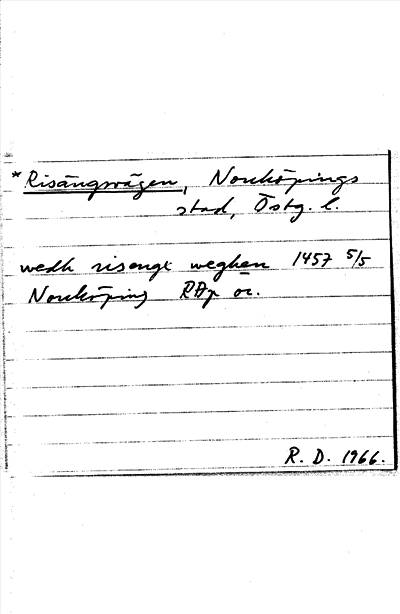 *Risängsvägen, Norrköpings
stad, Östg. l.
wedh risengx weghen 1457 5/5
Norrköping RAp or.
R. D. 1966.